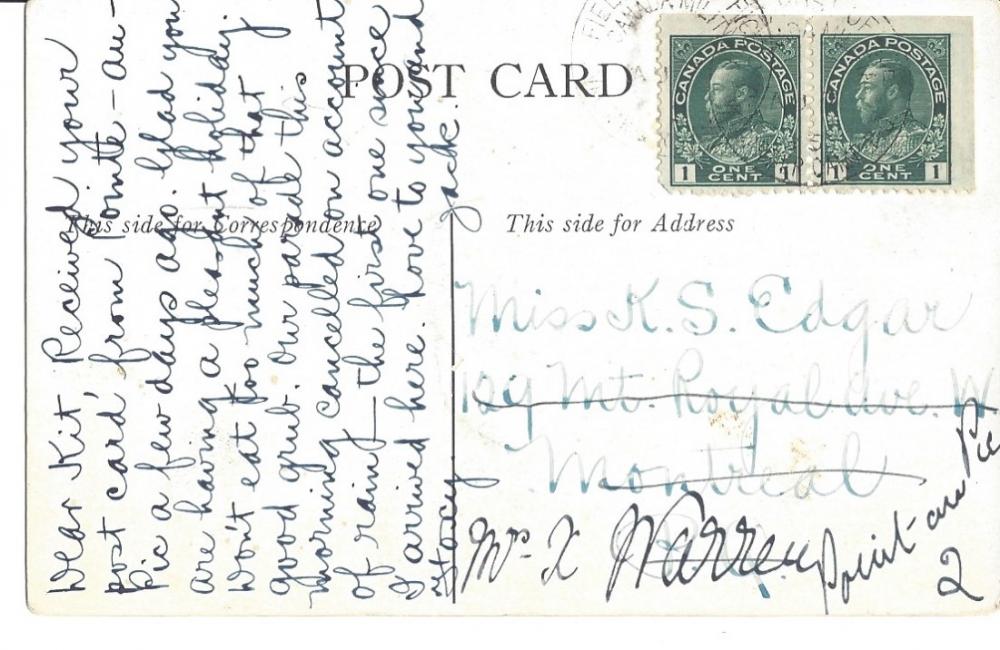 POST CARD
This side for Correspondence
This side for Address
CANADA POSTAGE
1 ONE CENT 1
CANADA POSTAGE
1 ONE CENT 1
Dear Kit, Received your
post card, from Pointe-au-
Pic a few days ago. Glad you
are having a pleasant holiday.
Won't eat too much of that
good grub. Our parade this
morning cancelled on account
of rain, — the first one since
I arrived here. Love to you and
Stacy
Jack.
Miss K. S. Edgar
129 Mt. Royal Ave. W
Montreal
Warren
Point-au Pic
2